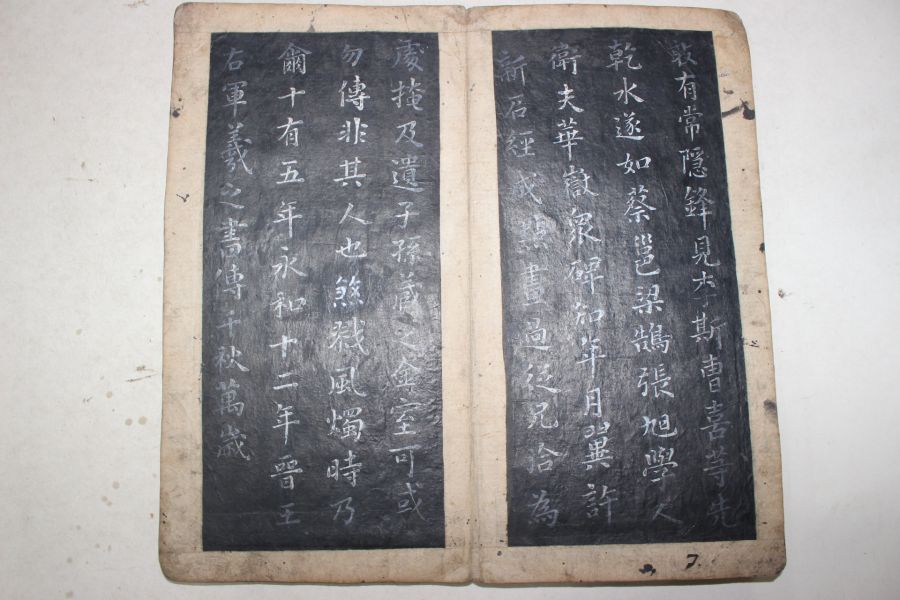 敢有常隱鋒見李斯曹喜等先
乾水遂如蔡邕梁鵠張旭學人
衛夫華嶽衆碑知年月巽許
新石經或 畫過從兄洽為
處掩及遺子孫藏之金室可或
勿傳非其人也煞戮風燭時乃
爾十有五年永和十二年晉王
右軍羲之書傳千秋萬歲